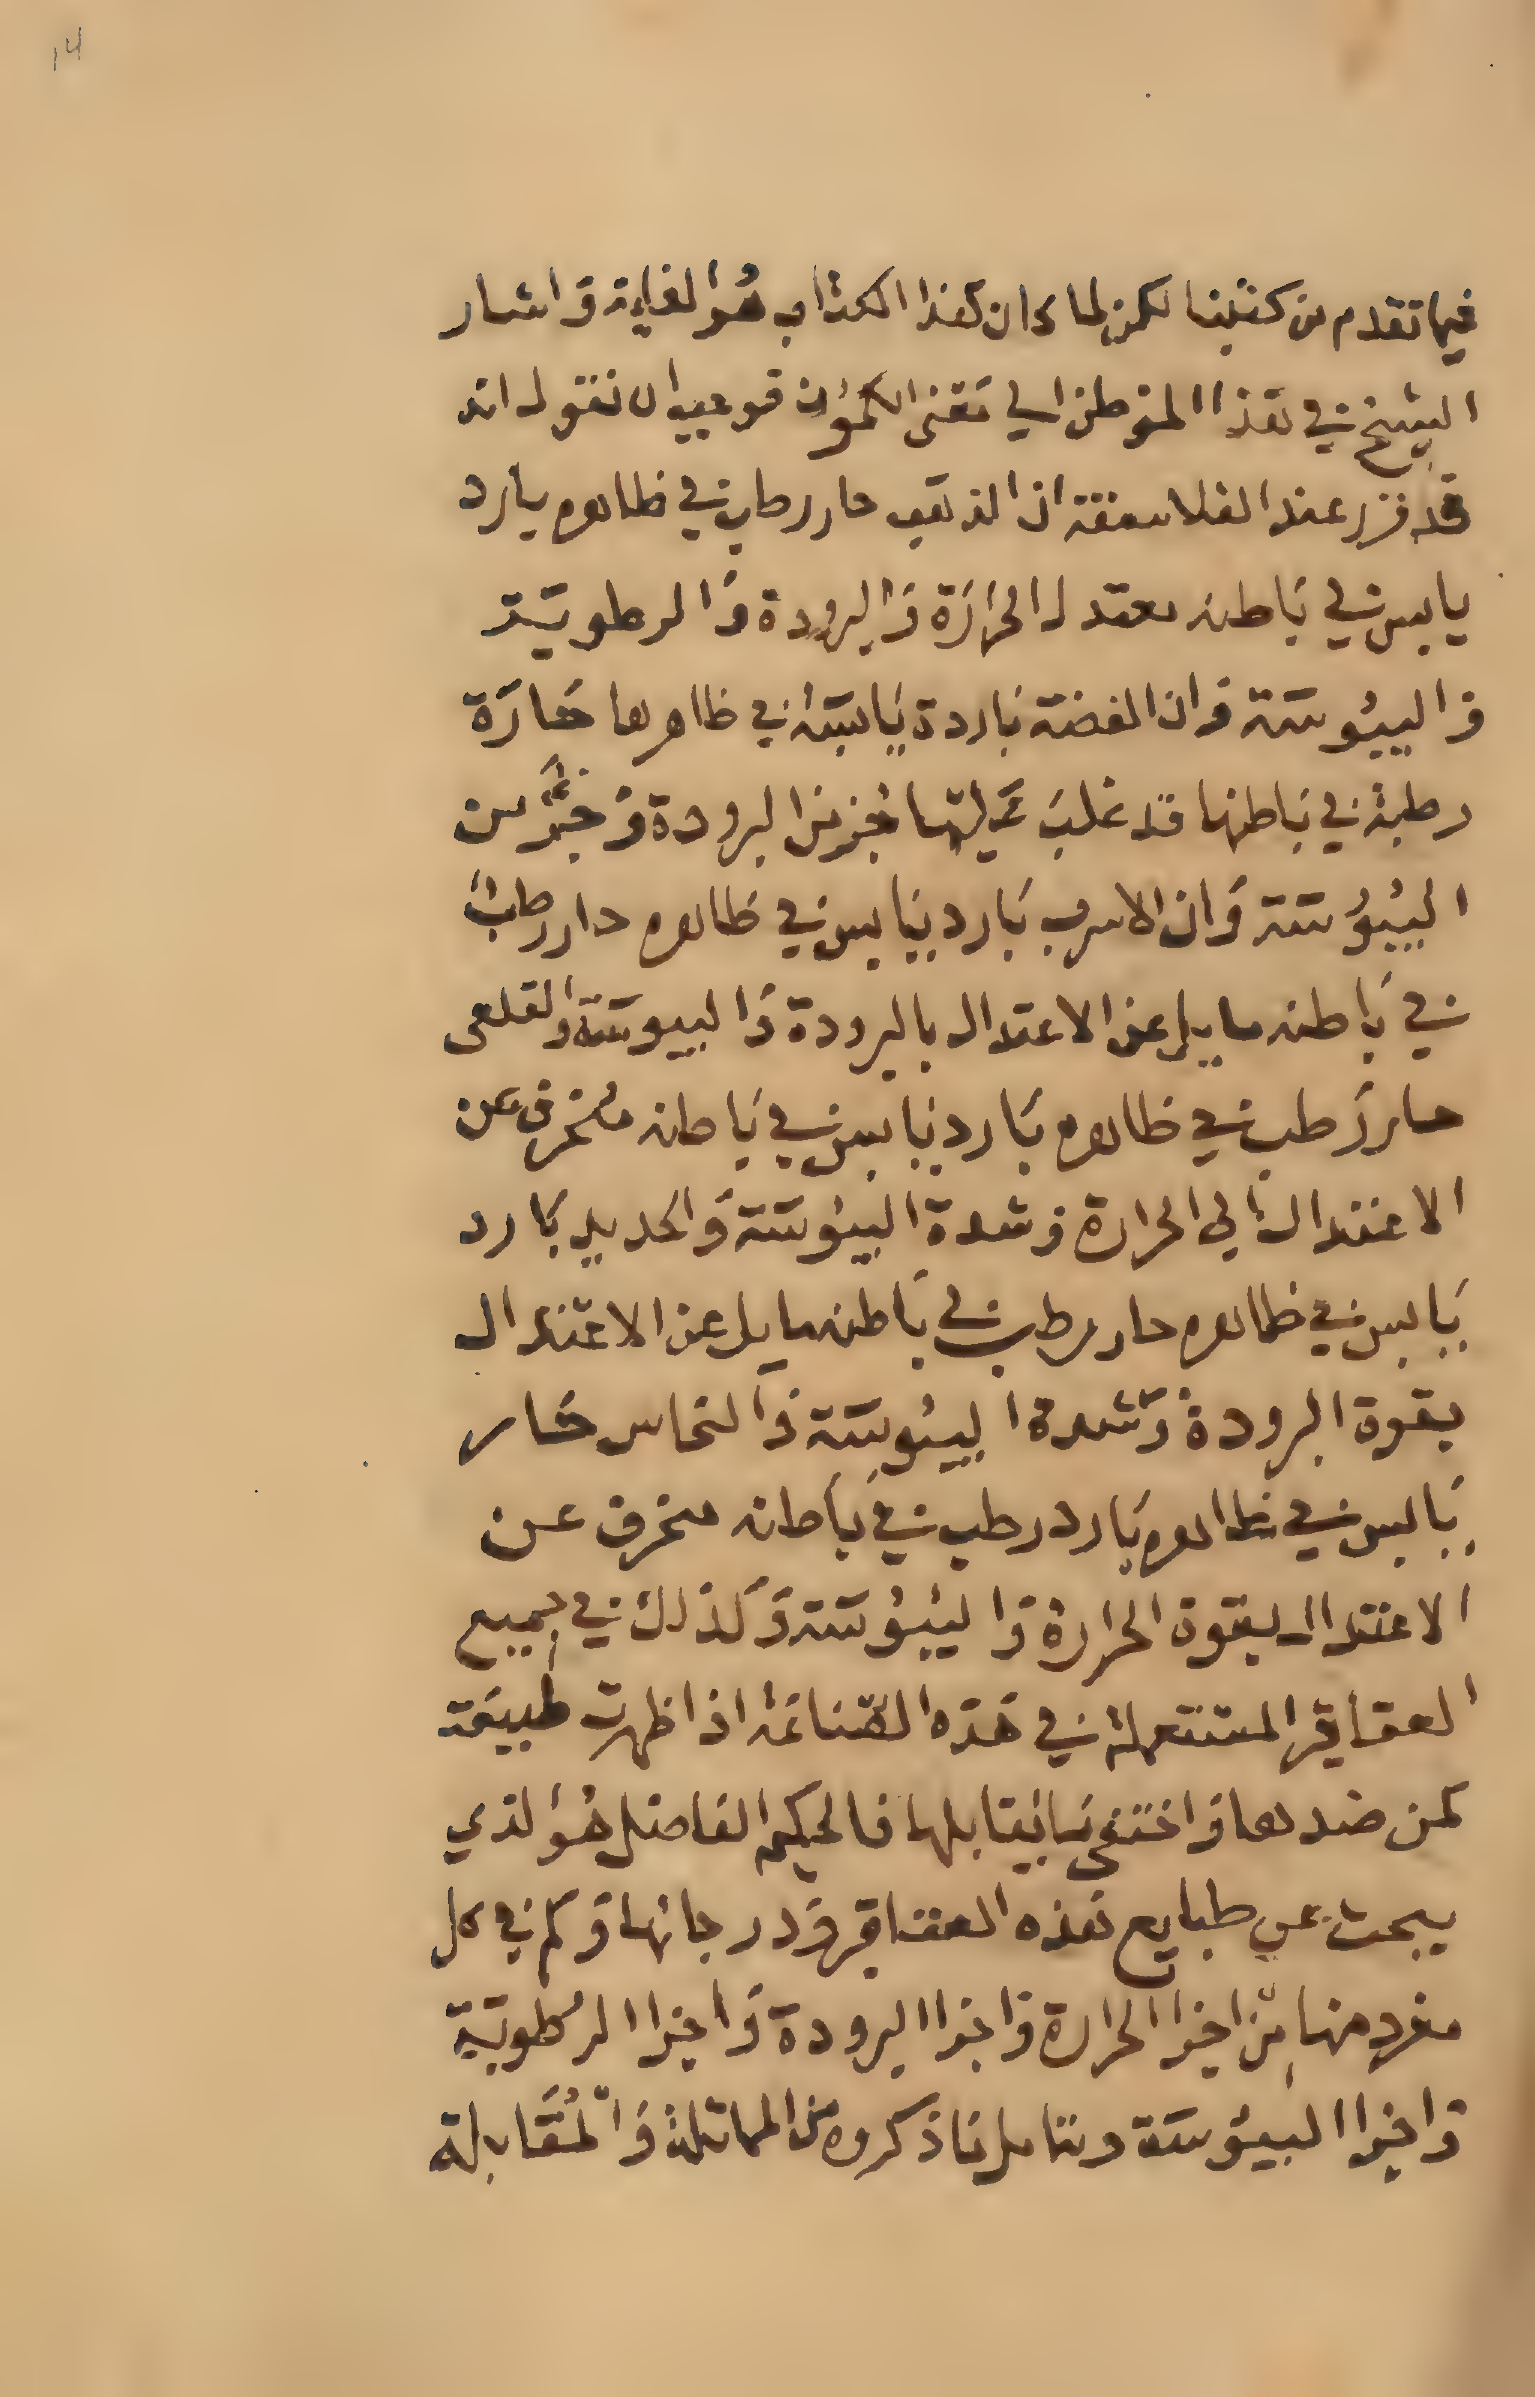 14
فيما تقدم من كتبنا لكن لما كان هذا الكتاب هُوَ الغاية وَاشار
الشيخ في هذا الموطن الي مَعْنى الكمُون فوجب ان نقول انه
قد قرر عند الفلاسفة ان الذهب حار رطب في ظاهره بارد
يابس في بَاطنه معتدل الحَرَارَة وَالبرودة وَالرطوبَة
وَاليبُوسَة وَان الفضة بَاردة يَابسَة في ظاهرها حَارَة
رطبة في بَاطنها قد غلبَ عَليهَا جُزء من البرودة وَجزءٌ من
اليبُوسَة وَان الاسرب بَارد يَابس في ظَاهره حار رطبٌ
في بَاطنه مايل عن الاعتدال بالبرودة وَاليبوسَة وَالقلعى
حار رَطب في ظاهره بَارد يَابس في بَاطنه منحرف عن
الاعتدال الي الحرارة وَشدة اليبُوسَة وَالحديد بَارد
يَابس في ظاهره حار رطب في بَاطنه مايل عن الاعتدال
بقوة البرودة وَشَدة اليبُوسَة وَالنحاس حَار
يَابس في ظاهره بَارد رطب في بَاطنه منحرف عن
الاعتدال بقوة الحرارة وَاليبُوسَة وَكذلك في جميع
العقاقير المستعملة في هَذه الصّنَاعَة اذا ظهرت طبيعَة
كمن ضدها وَاختفى مَا يقابلها فالحكيم الفَاضل هُوَ الذي
يبحث عن طبايع هَذه العقاقير وَدرجاتها وَكم في كل
مفرد منها مِن اجزا الحرارة وَاجزا البرودة وَاجزا الرُطوبَة
وَاجزا اليبُوسَة ويتامل مَا ذكروه من المماثلة وَالمُقَابلة